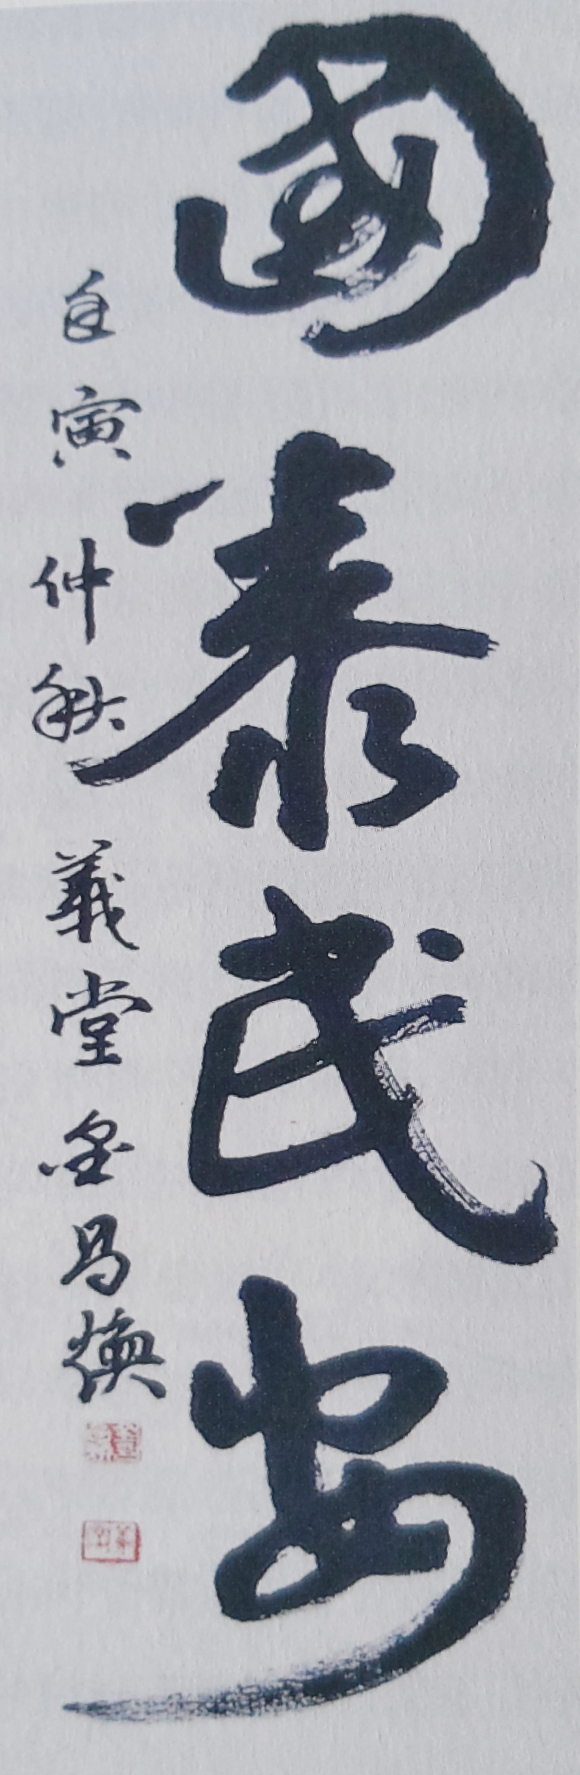 國泰民安
寅仲秋 義堂 金昌煥